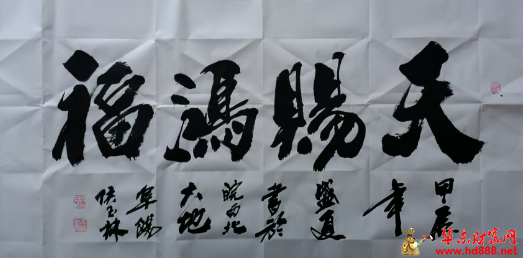 天赐鸿福
甲辰
年
盛夏
書於
皖西北
大地
阜陽
侯玉林
华东财富网
www.hd888.net